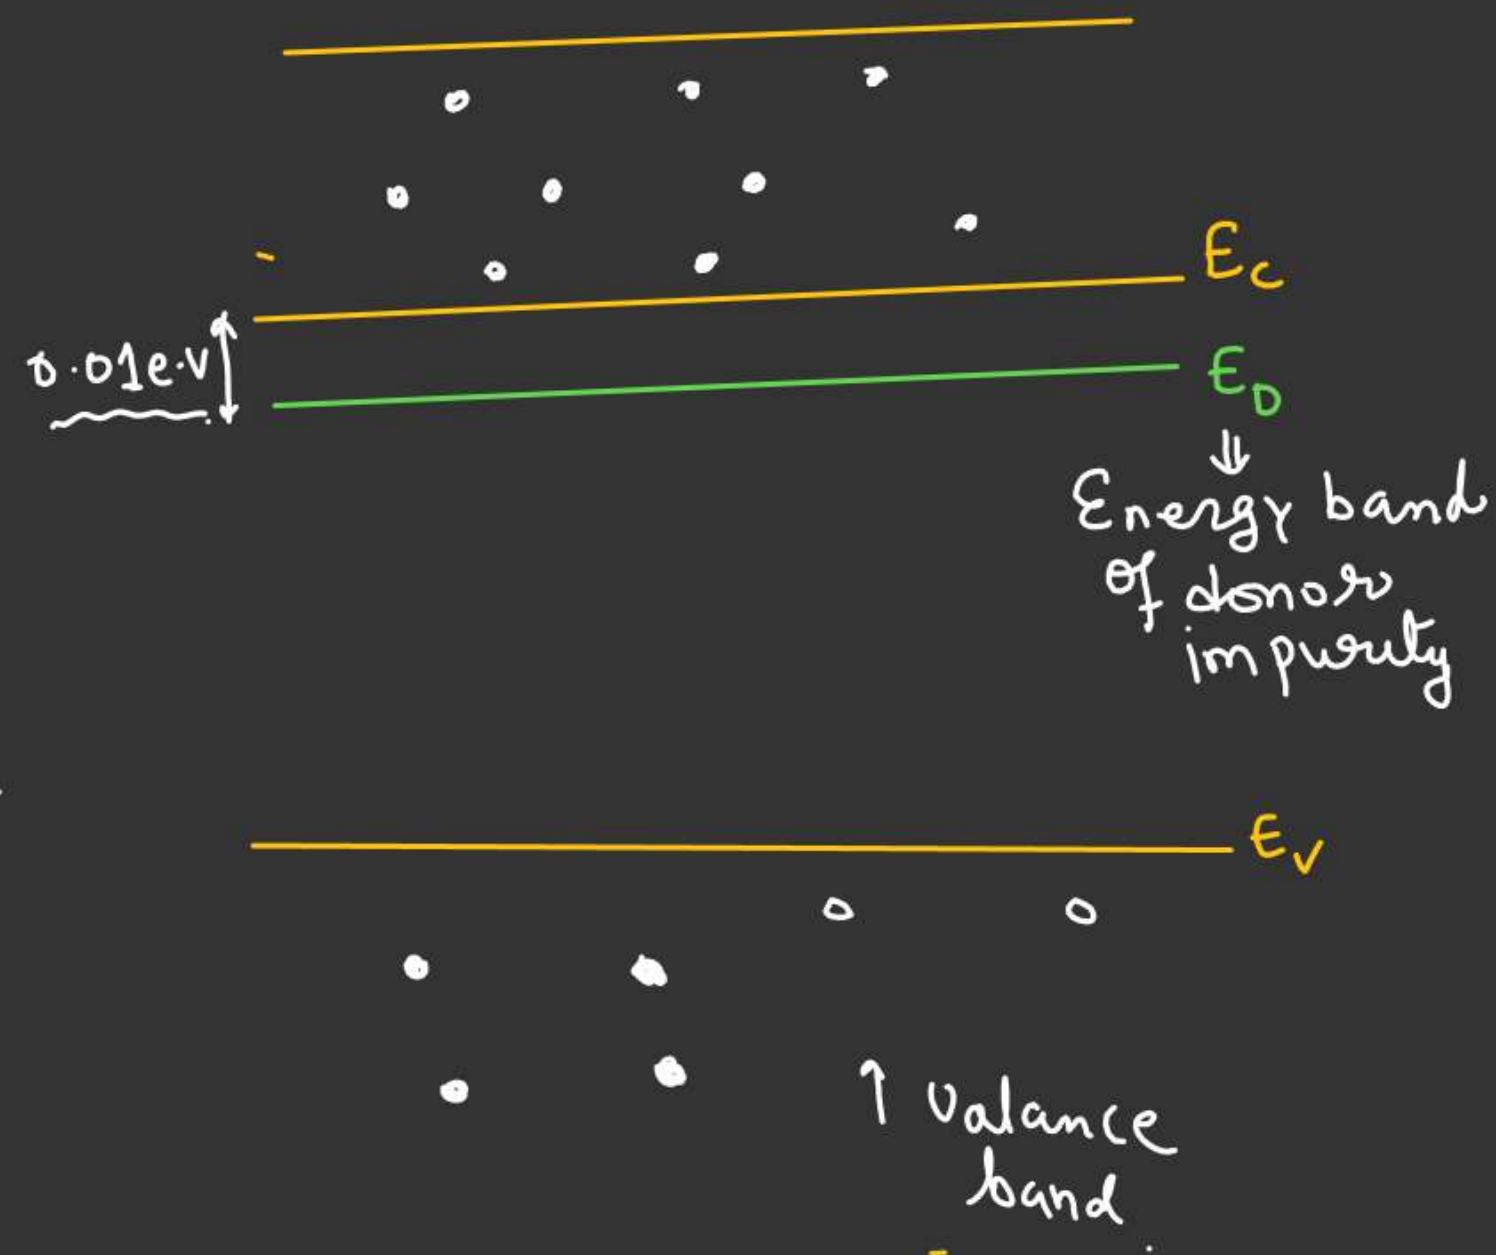 E_C
0.01e.V
E_D
⇓
Energy band
of donor
impurity
E_V
↑ Valance
band